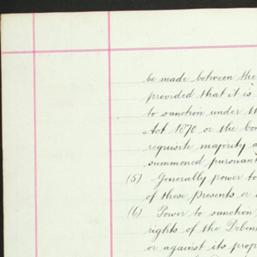 be made between the
provided that it is
to sanction under th
Act 1870 or the Com
requisite majority a
summoned pursuant
(5) Generally power to
of these presents or
(6) Power to sanction
rights of the Deben
or against its prop